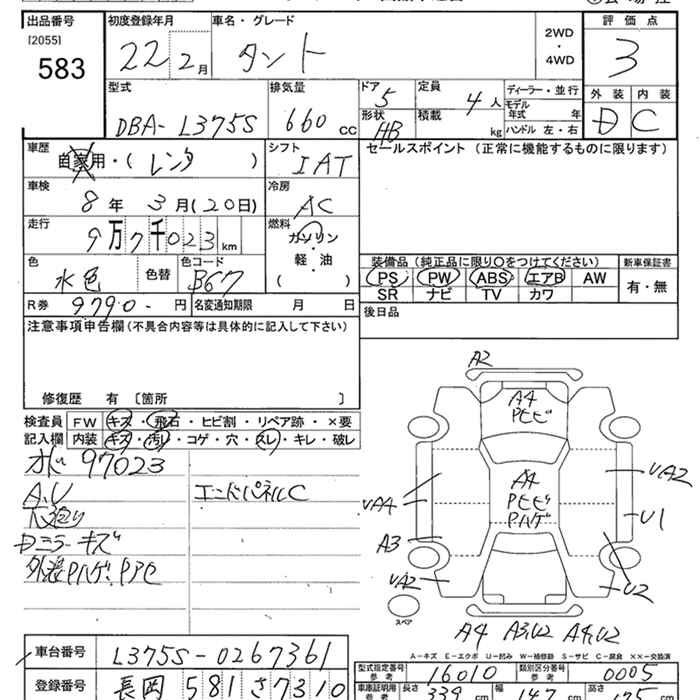 出品番号
[2055]
583
初度登録年月
22 2月
車名・グレード
タント
2WD
・
4WD
評価点
3
型式
DBA-L375S
排気量
660 CC
ドア
5
定員
4人
ディーラー・並行
形状
HB
積載
kg
モデル
年式 年
ハンドル 左・右
外装 内装
D C
車歴
自家用・(レンタ)
シフト
IAT
セールスポイント(正常に機能するものに限ります)
車検
8年 3月(20日)
冷房
AC
走行
9万7千023km
燃料
ガソリン
・
軽・油
( )
色
水色
色替
色コード
B67
装備品(純正品に限り○をつけてください)
PS PW ABS エアB AW
SR ナビ TV カワ
新車保証書
有・無
R券 9790-円
名変通知期限 月 日
後日品
注意事項申告欄(不具合内容等は具体的に記入して下さい)
修復歴 有〔箇所 〕
検査員
記入欄
FW キズ・飛石・ヒビ割・リペア跡・×要
内装 キズ・汚レ・コゲ・穴・スレ・キレ・破レ
97023
A.U
エンドパネルC
Dミラーキズ
外装Pハゲ.P
A2
A4
Pヒビ
A4
Pヒビ
Pハゲ
UA4
A3
UA2
UA2
U1
U2
スペア
A4 A3,U2 A4,U2
A-キズ E-エクボ U-凹み W-補修跡 S-サビ C-腐食 XX-交換済
車台番号
L375S-0267361
型式指定番号
参考
16010
類別区分番号
参考
0005
登録番号
長岡 581 さ7310
車庫証明用
参考
長さ 339 cm
幅 147 cm
高さ 175 cm